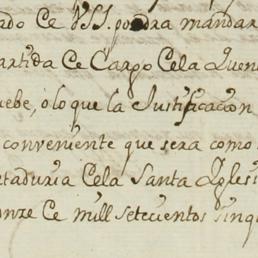 ardo Ce VSS. podra mandar
artida Ce Cargo Cela Quon
uebe, o lo que la Justificacion
conveniente que sera como
taduria Cela Santa Igles
onze Ce mill setecientos sinq